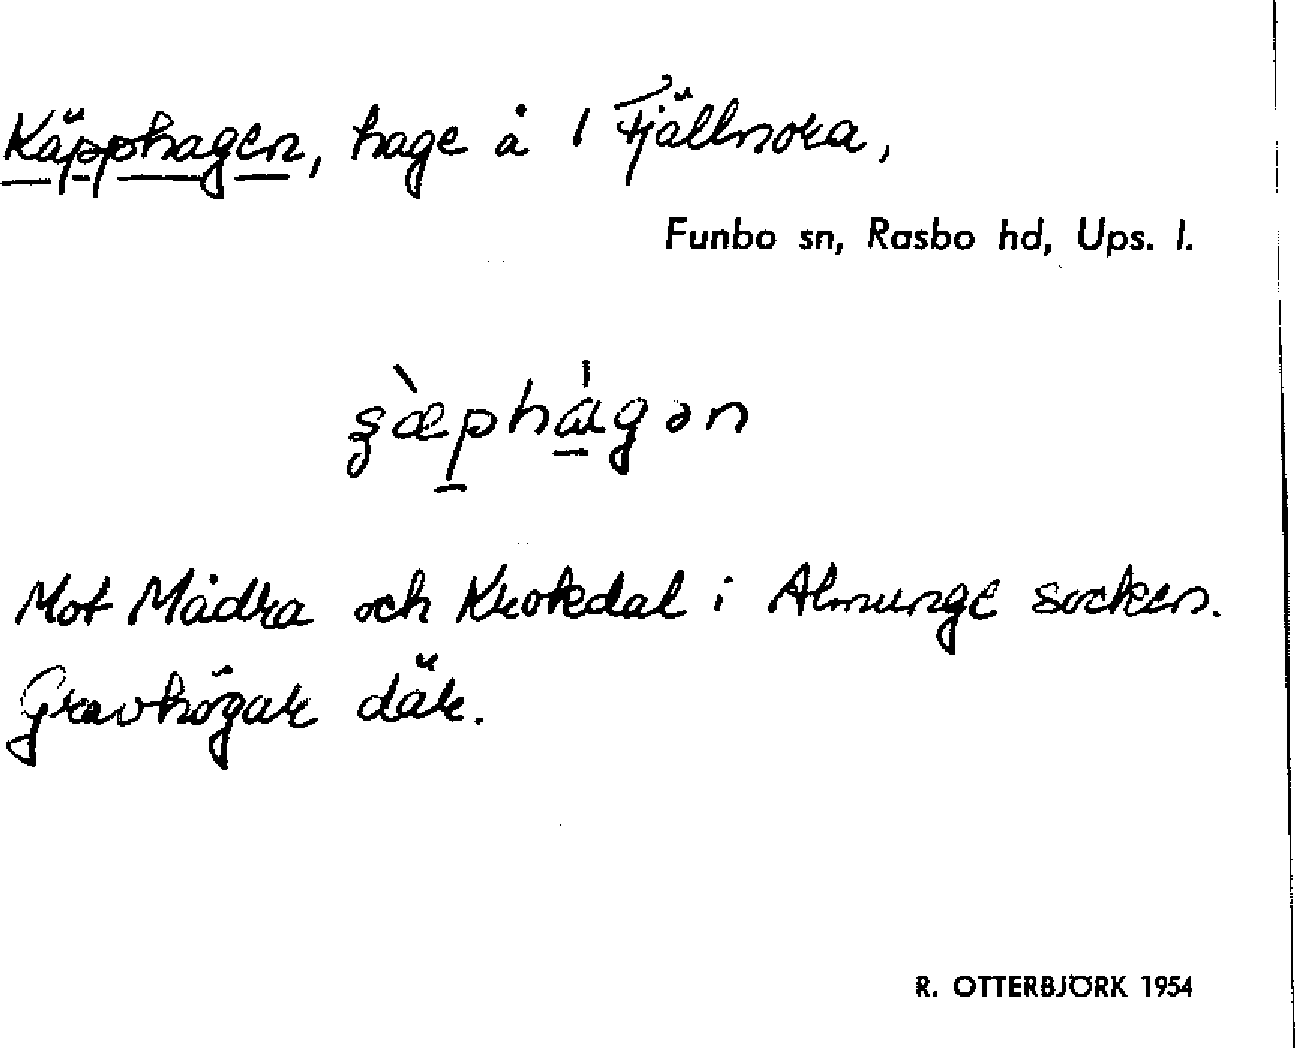 Käpphagen, hage å 1 Fjällnora,
Funbo sn, Rasbo hd, Ups. l.
Mot Mådra och Krokdal i Almunge socken.
Gravhögar där.
R. OTTERBJÖRK 1954